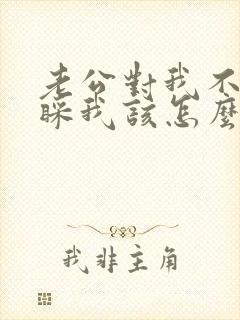 老公對我不
睬我該怎麼
我非主角